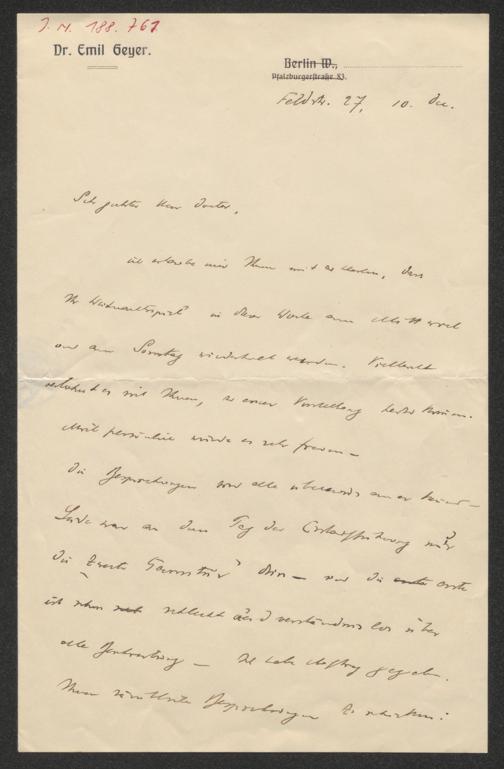 J. N. 188.761
Dr. Emil Geyer.
Berlin W.,
Pfalzburgerstraße 83.
Feldstr. 27, 10. Dez.
Sehr geehrter Herr Doctor,
ich erlaube mir Ihnen mitzuteilen, dass
Ihr Weihnachtsspiel in dieser Woche am Mittwoch
und am Sonntag wiederholt werden. Vielleicht
es mit Ihnen, zu einer Vorstellung
Mich persönlich würde es sehr freuen –
Die Besprechungen sind alle überaus –
Leider war an dem Tag der Erstaufführung nur
die „zweite Garnitur" drin – und die erste
ist schon schlecht und verständnislos über
alle – Ich habe Auftrag gegeben.
Ihnen sämtliche Besprechungen zu schicken: